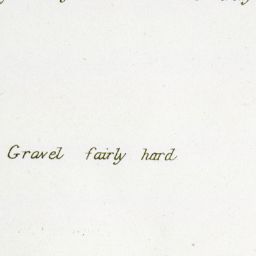 Gravel fairly hard